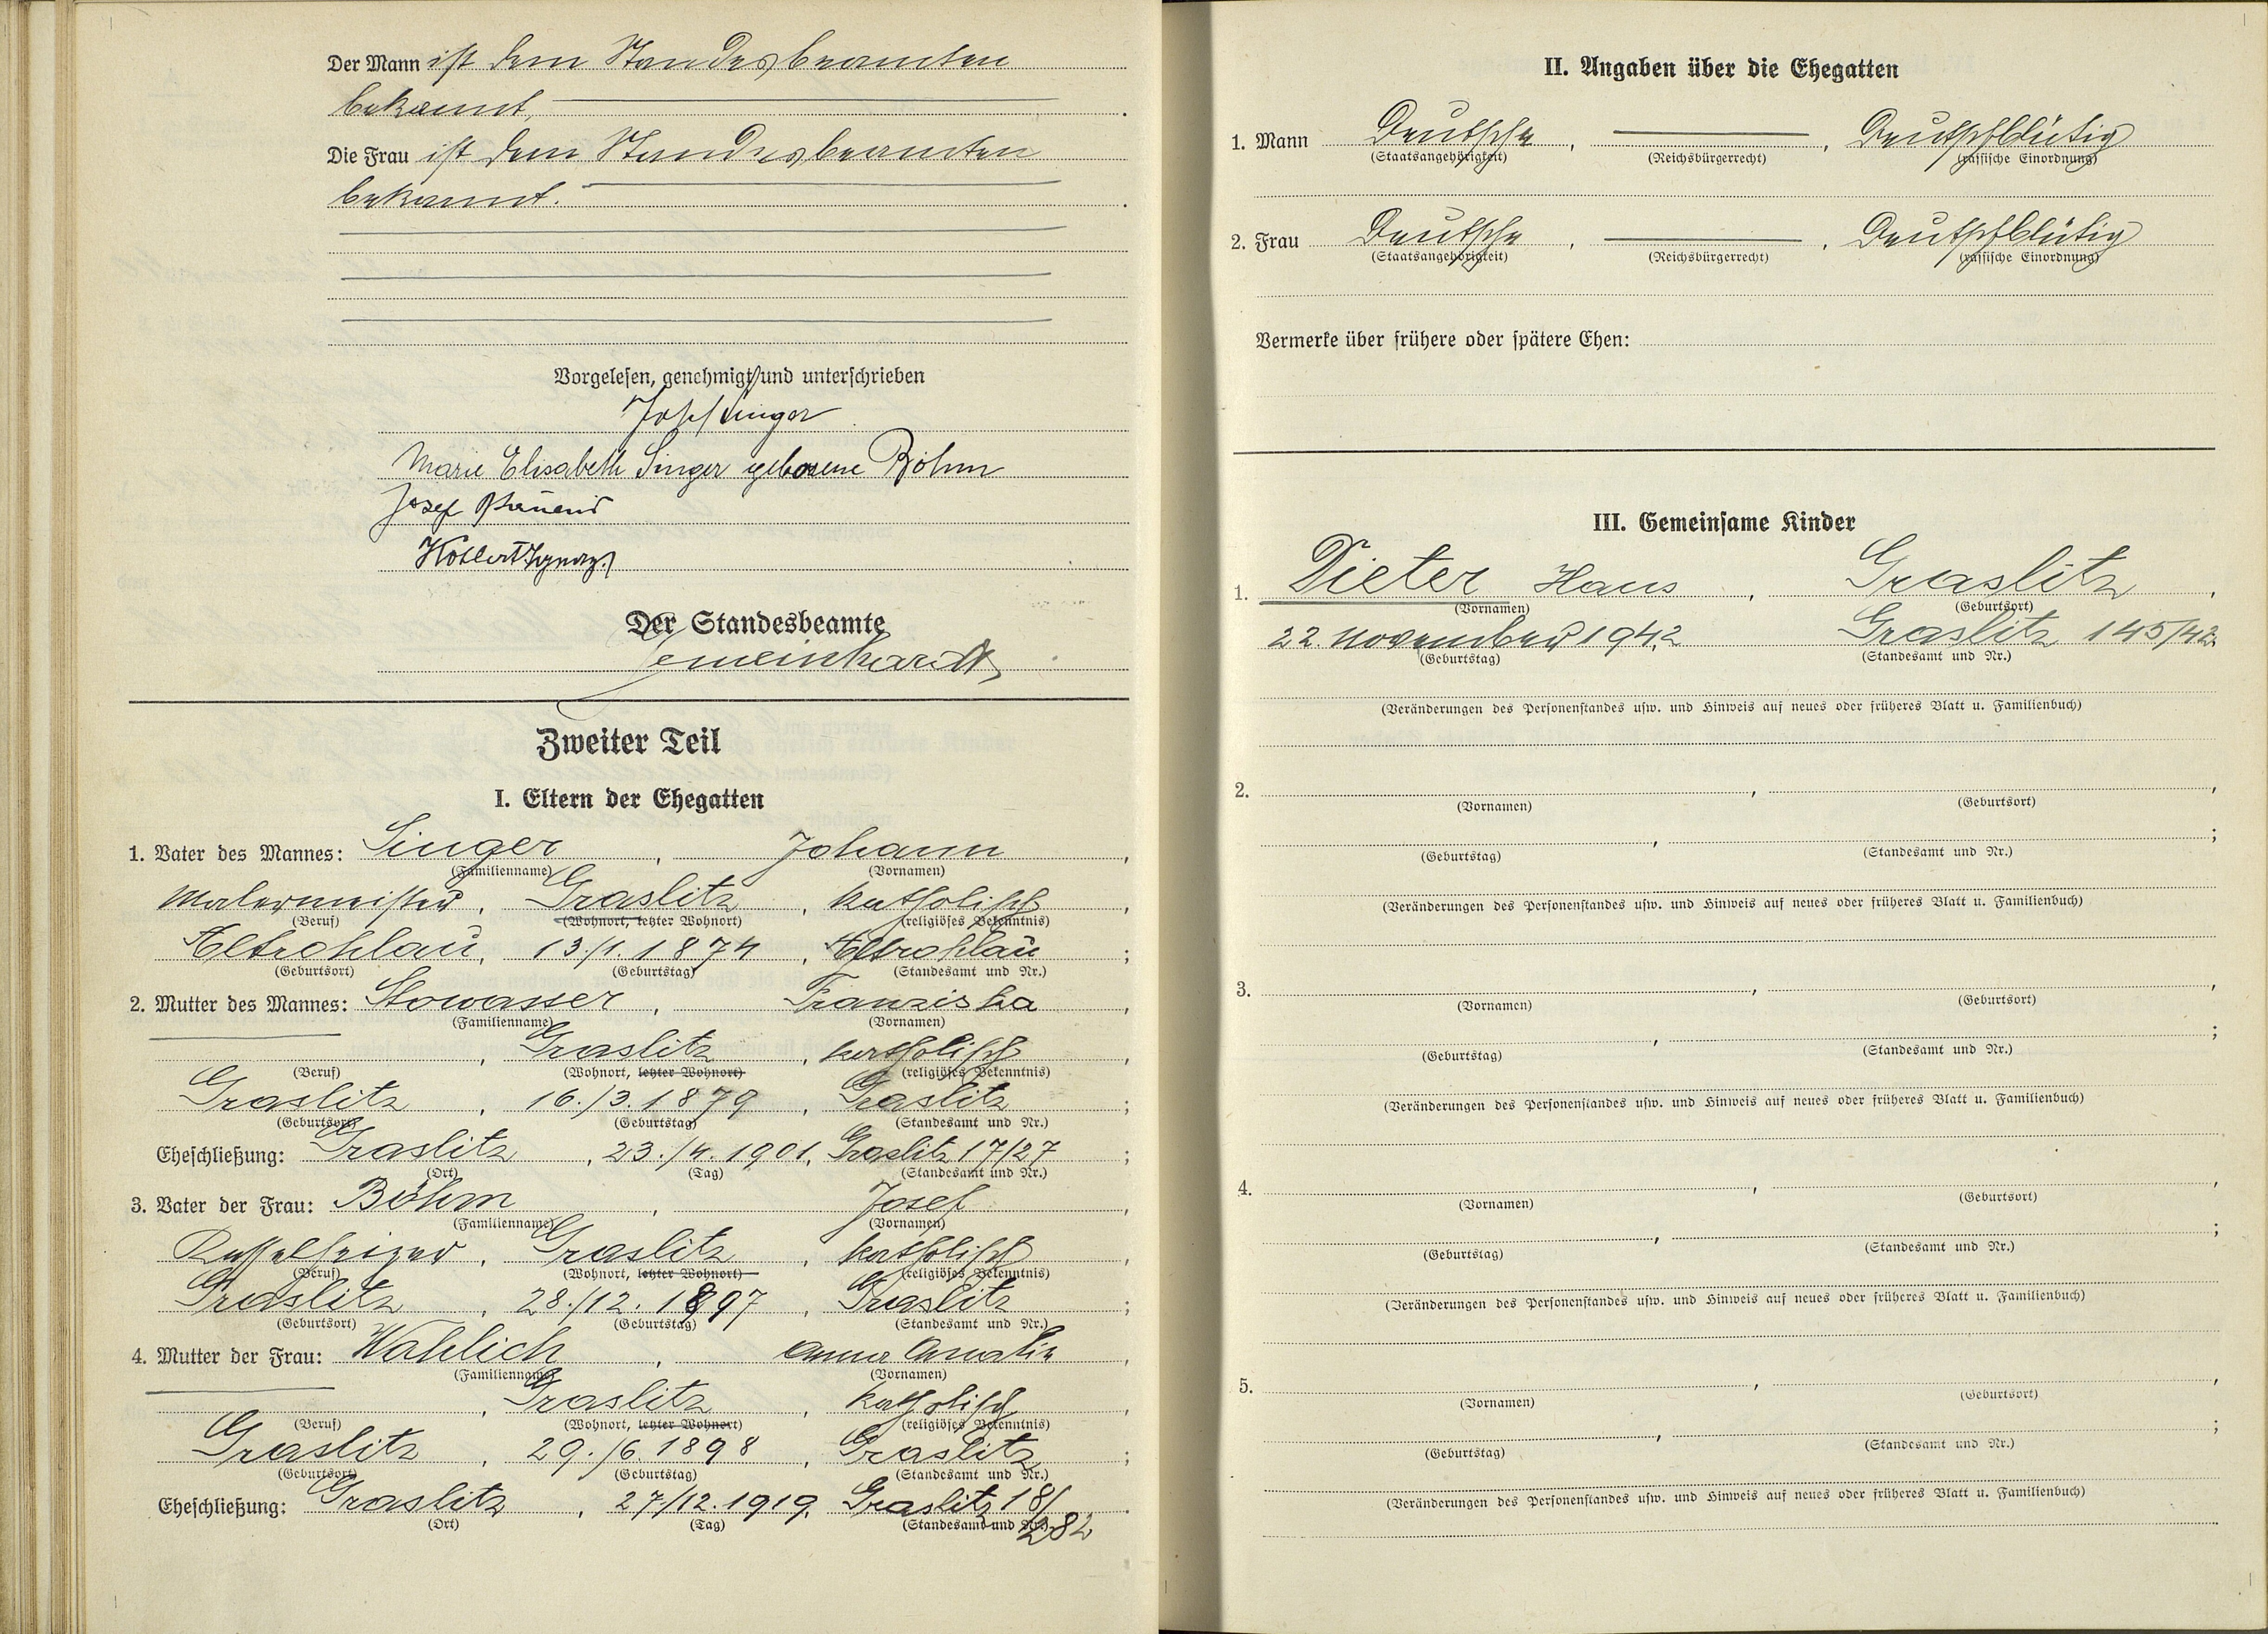 Der Mann ist dem Standesbeamten
bekannt,
Die Frau ist dem Standesbeamten
bekannt.
Vorgelesen, genehmigt und unterschrieben
Josef Singer
Marie Elisabeth Singer geborene Böhm
Josef
Der Standesbeamte
Zweiter Teil
I. Eltern der Ehegatten
1. Vater des Mannes: Singer, Johann,
(Familienname) (Vornamen)
Malermeister, Graslitz, katholisch,
(Beruf) (Wohnort, letzter Wohnort) (religiöses Bekenntnis)
Altrohlau, 13./1. 1874, Altrohlau;
(Geburtsort) (Geburtstag) (Standesamt und Nr.)
2. Mutter des Mannes: Stowasser, Franziska,
(Familienname) (Vornamen)
, Graslitz, katholisch,
(Beruf) (Wohnort, letzter Wohnort) (religiöses Bekenntnis)
Graslitz, 16./3. 1879, Graslitz;
(Geburtsort) (Geburtstag) (Standesamt und Nr.)
Eheschließung: Graslitz, 23./4. 1901, Graslitz 17/27;
(Ort) (Tag) (Standesamt und Nr.)
3. Vater der Frau: Böhm, Josef,
(Familienname) (Vornamen)
Kesselheizer, Graslitz, katholisch,
(Beruf) (Wohnort, letzter Wohnort) (religiöses Bekenntnis)
Graslitz, 28./12. 1897, Graslitz;
(Geburtsort) (Geburtstag) (Standesamt und Nr.)
4. Mutter der Frau: Wahlich, Anna Amalia,
(Familienname) (Vornamen)
, Graslitz, katholisch,
(Beruf) (Wohnort, letzter Wohnort) (religiöses Bekenntnis)
Graslitz, 29./6. 1898, Graslitz;
(Geburtsort) (Geburtstag) (Standesamt und Nr.)
Eheschließung: Graslitz, 27./12. 1919, Graslitz 18/
(Ort) (Tag) (Standesamt und Nr.) 282
II. Angaben über die Ehegatten
1. Mann Deutsche, , Deutschblütig
(Staatsangehörigkeit) (Reichsbürgerrecht) (rassische Einordnung)
2. Frau Deutsche, , Deutschblütig
(Staatsangehörigkeit) (Reichsbürgerrecht) (rassische Einordnung)
Vermerke über frühere oder spätere Ehen:
III. Gemeinsame Kinder
1. Dieter Hans, Graslitz,
(Vornamen) (Geburtsort)
22. November 1942 Graslitz 145/42
(Geburtstag) (Standesamt und Nr.)
(Veränderungen des Personenstandes usw. und Hinweis auf neues oder früheres Blatt u. Familienbuch)
2. , ,
(Vornamen) (Geburtsort)
, ;
(Geburtstag) (Standesamt und Nr.)
(Veränderungen des Personenstandes usw. und Hinweis auf neues oder früheres Blatt u. Familienbuch)
3. , ,
(Vornamen) (Geburtsort)
, ;
(Geburtstag) (Standesamt und Nr.)
(Veränderungen des Personenstandes usw. und Hinweis auf neues oder früheres Blatt u. Familienbuch)
4. , ,
(Vornamen) (Geburtsort)
, ;
(Geburtstag) (Standesamt und Nr.)
(Veränderungen des Personenstandes usw. und Hinweis auf neues oder früheres Blatt u. Familienbuch)
5. , ,
(Vornamen) (Geburtsort)
, ;
(Geburtstag) (Standesamt und Nr.)
(Veränderungen des Personenstandes usw. und Hinweis auf neues oder früheres Blatt u. Familienbuch)